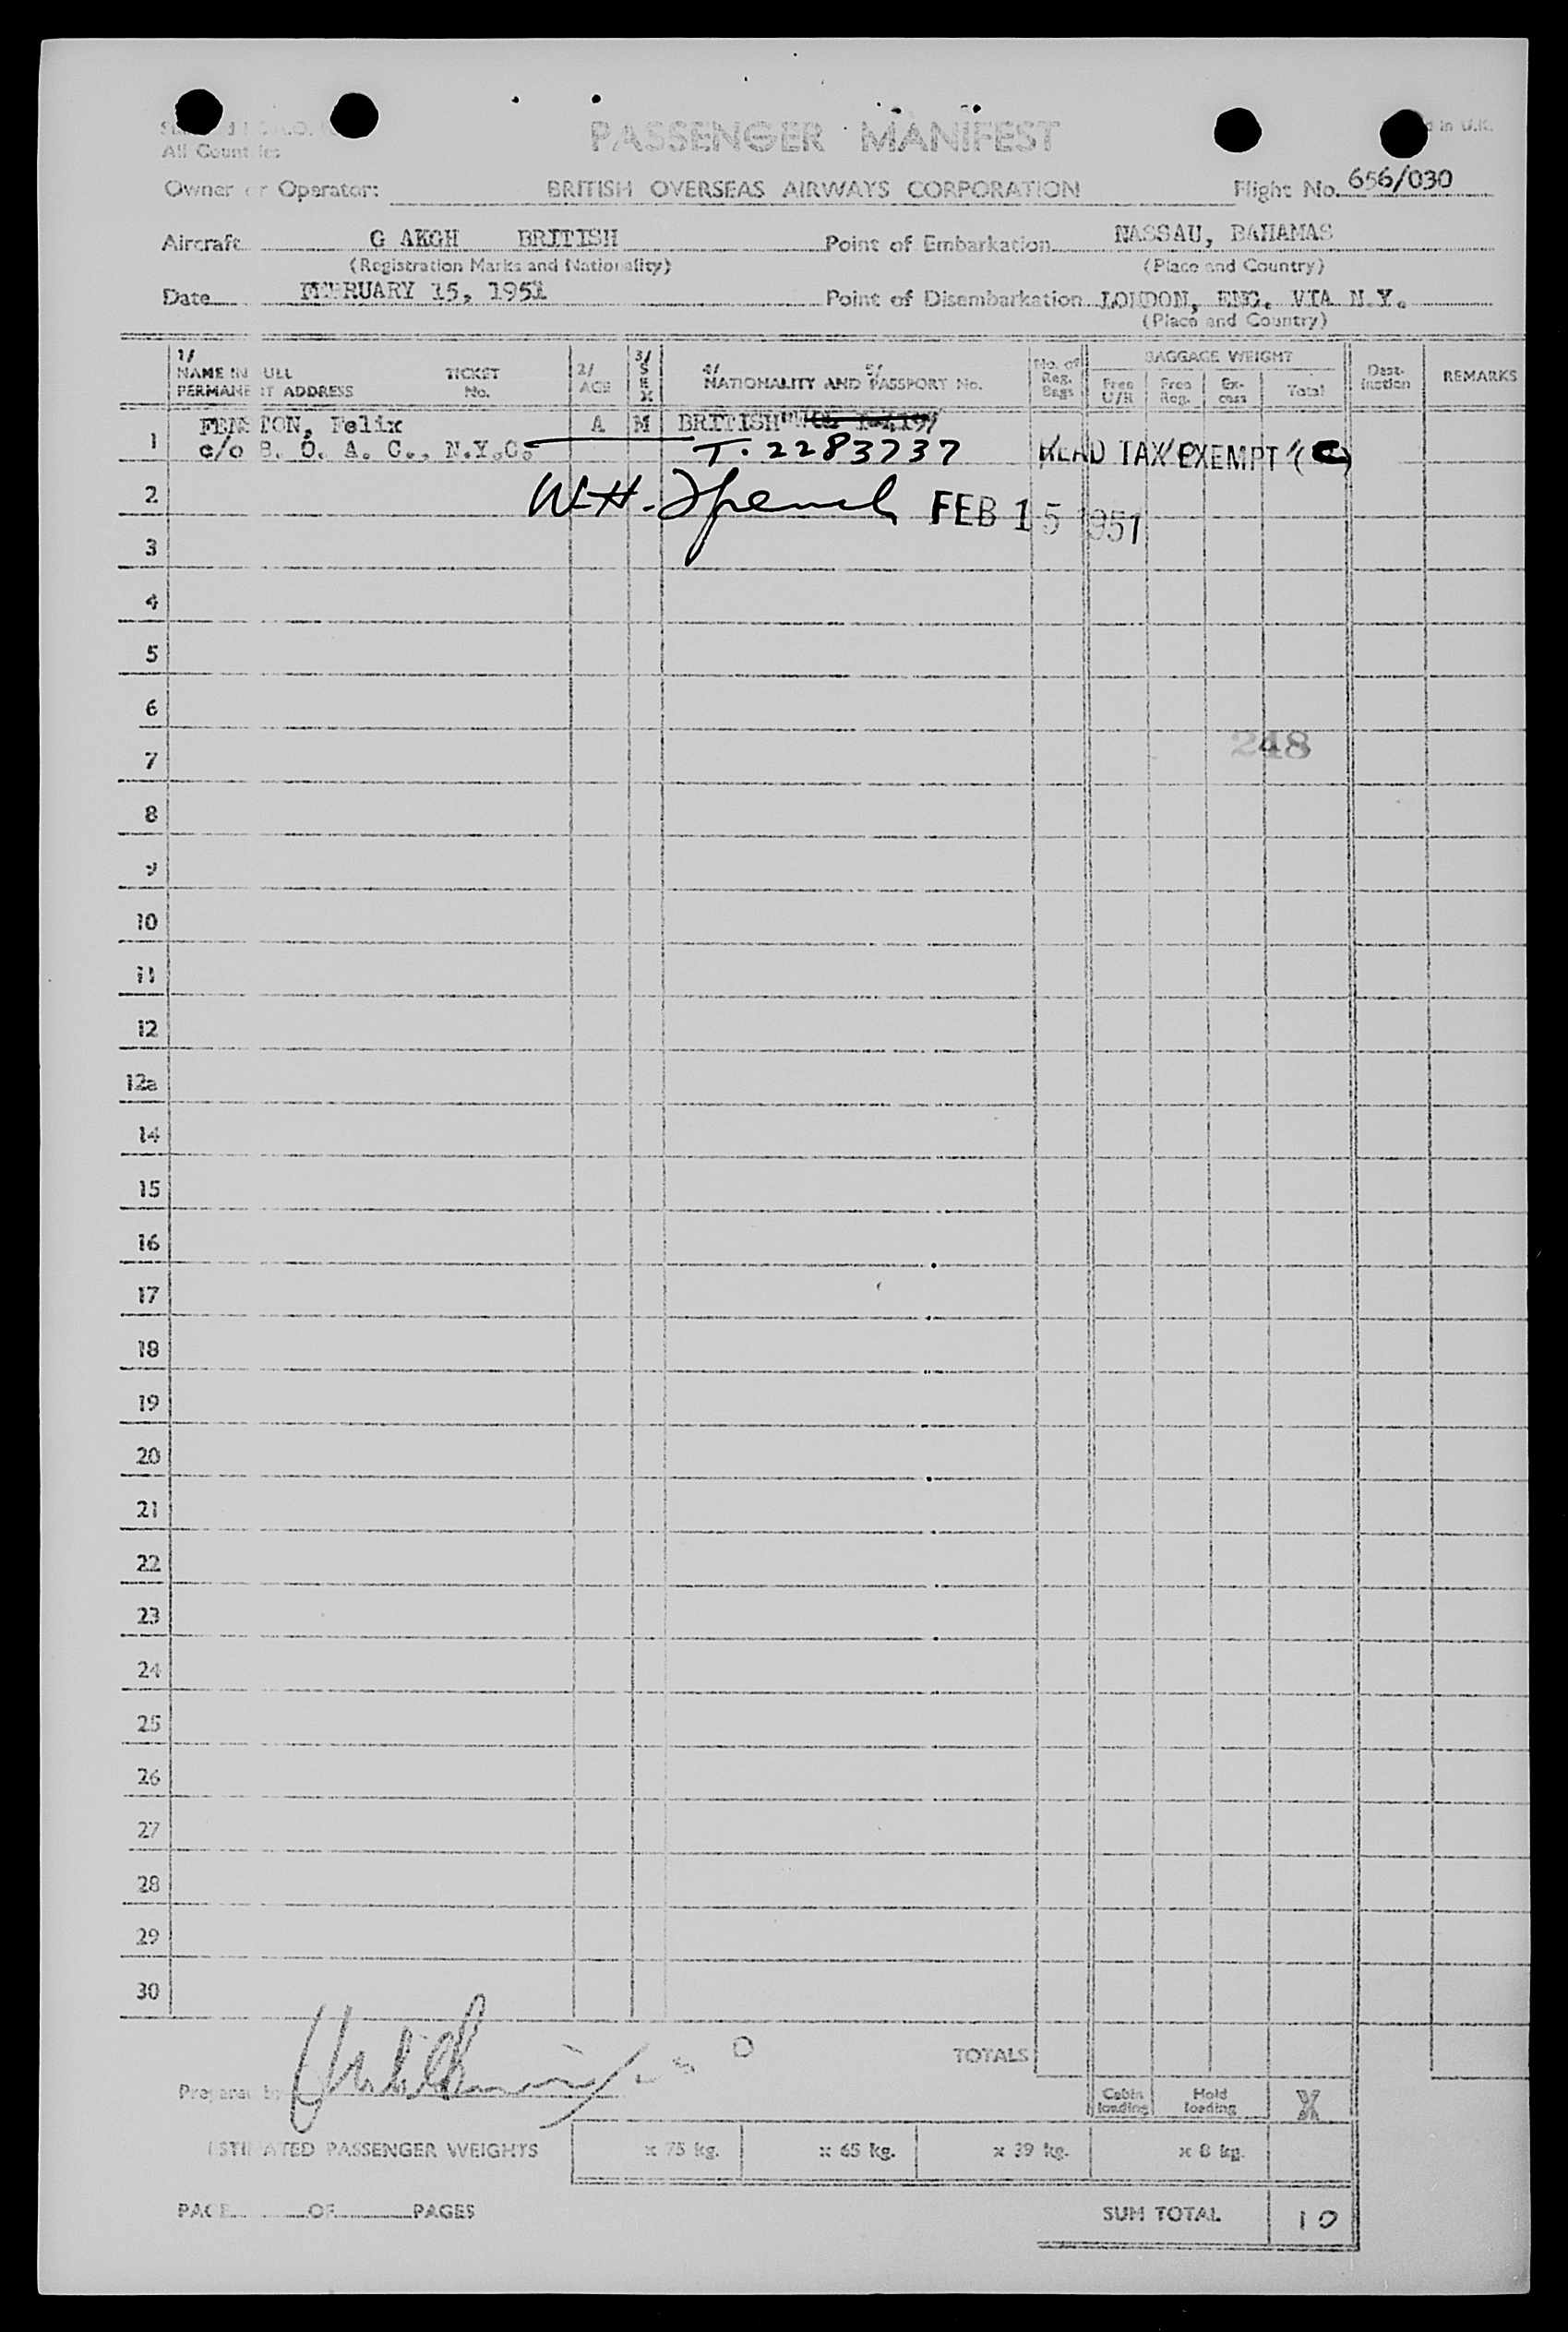 All Countries
PASSENGER MANIFEST
Owner or Operator: BRITISH OVERSEAS AIRWAYS CORPORATION Flight No. 656/030
Aircraft G AKGH BRITISH Point of Embarkation NASSAU, BAHAMAS
(Registration Marks and Nationality) (Place and Country)
Date FEBRUARY 15, 1951 Point of Disembarkation LONDON, ENG. VIA N.Y.
(Place and Country)
1/ NAME IN FULL TICKET 2/ 3/ SEX 4/ 5/ No. of BAGGAGE WEIGHT Dest- REMARKS
PERMANENT ADDRESS No. AGE NATIONALITY AND PASSPORT No. Reg. Bags Free U/R Free Reg. Ex-cess Total ination
1 FENSTON, Felix A M BRITISH
c/o B. O. A. C., N.Y.C. T. 2283737 HEAD TAX EXEMPT (C)
2 W.H. FEB 15 1951
3
4
5
6
248
7
8
9
10
11
12
12a
14
15
16
17
18
19
20
21
22
23
24
25
26
27
28
29
30
TOTALS
Prepared by
Cabin loading Hold loading X
ESTIMATED PASSENGER WEIGHTS x 75 kg. x 65 kg. x 39 kg. x 8 kg.
PAGE OF PAGES SUM TOTAL 10